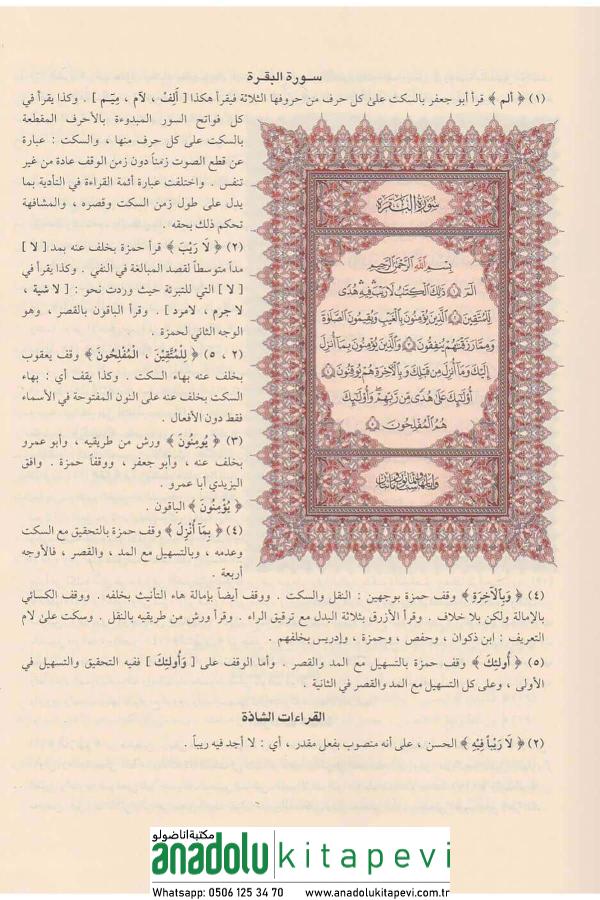 سورة البقرة
(١) ﴿ الم ﴾ قرأ أبو جعفر بالسكت على كل حرف من حروفها الثلاثة فيقرأ هكذا [ أَلِفْ ، لَآم ، مِيَـم ] . وكذا يقرأ في
كل فواتح السور المبدوءة بالأحرف المقطعة
بالسكت على كل حرف منها ، والسكت : عبارة
عن قطع الصوت زمناً دون زمن الوقف عادة من غير
تنفس . واختلفت عبارة أئمة القراءة في التأدية بما
يدل على طول زمن السكت وقصره ، والمشافهة
تحكم ذلك بحقه .
(٢) ﴿ لَا رَيْبَ ﴾ قرأ حمزة بخلف عنه بمد [ لا ]
مداً متوسطاً لقصد المبالغة في النفي . وكذا يقرأ في
[ لا ] التي للتبرئة حيث وردت نحو : [ لا شية ،
لا جرم ، لامرد ] . وقرأ الباقون بالقصر ، وهو
الوجه الثاني لحمزة .
(٢ ، ٥) ﴿ لِلْمُتَّقِيْنَ ، الْمُفْلِحُونَ ﴾ وقف يعقوب
بخلف عنه بهاء السكت . وكذا يقف أي : بهاء
السكت بخلف عنه على النون المفتوحة في الأسماء
فقط دون الأفعال .
(٣) ﴿ يُومِنُونَ ﴾ ورش من طريقيه ، وأبو عمرو
بخلف عنه ، وأبو جعفر ، ووقفاً حمزة . وافق
اليزيدي أبا عمرو .
﴿ يُؤْمِنُونَ ﴾ الباقون .
(٤) ﴿ بِمَآ أُنْزِلَ ﴾ وقف حمزة بالتحقيق مع السكت
وعدمه ، وبالتسهيل مع المد ، والقصر ، فالأوجه
أربعة .
سُورَةُ البَقَرَة
بِسْمِ اللَّهِ الرَّحْمَٰنِ الرَّحِيمِ
الٓمٓ ١ ذَٰلِكَ الْكِتَٰبُ لَا رَيْبَ فِيهِ هُدًى
لِّلْمُتَّقِينَ ٢ الَّذِينَ يُؤْمِنُونَ بِالْغَيْبِ وَيُقِيمُونَ الصَّلَوٰةَ
وَمِمَّا رَزَقْنَٰهُمْ يُنفِقُونَ ٣ وَالَّذِينَ يُؤْمِنُونَ بِمَآ أُنزِلَ
إِلَيْكَ وَمَآ أُنزِلَ مِن قَبْلِكَ وَبِالْآخِرَةِ هُمْ يُوقِنُونَ ٤
أُوْلَٰٓئِكَ عَلَىٰ هُدًى مِّن رَّبِّهِمْ وَأُوْلَٰٓئِكَ
هُمُ الْمُفْلِحُونَ ٥
(٤) ﴿ وَبِالآخِرَةِ ﴾ وقف حمزة بوجهين : النقل والسكت . ووقف أيضاً بإمالة هاء التأنيث بخلفه . ووقف الكسائي
بالإمالة ولكن بلا خلاف . وقرأ الأزرق بثلاثة البدل مع ترقيق الراء . وقرأ ورش من طريقيه بالنقل . وسكت على لام
التعريف : ابن ذكوان ، وحفص ، وحمزة ، وإدريس بخلفهم .
(٥) ﴿ أُولئِكَ ﴾ وقف حمزة بالتسهيل مع المد والقصر . وأما الوقف على [ وَأُولئِكَ ] ففيه التحقيق والتسهيل في
الأولى ، وعلى كل التسهيل مع المد والقصر في الثانية .
القراءات الشاذة
(٢) ﴿ لَا رَيْباً فِيْهِ ﴾ الحسن ، على أنه منصوب بفعل مقدر ، أي : لا أجد فيه ريباً .
مكتبة اناضولو
anadolu kitapevi
Whatsapp: 0506 125 34 70 www.anadolukitapevi.com.tr